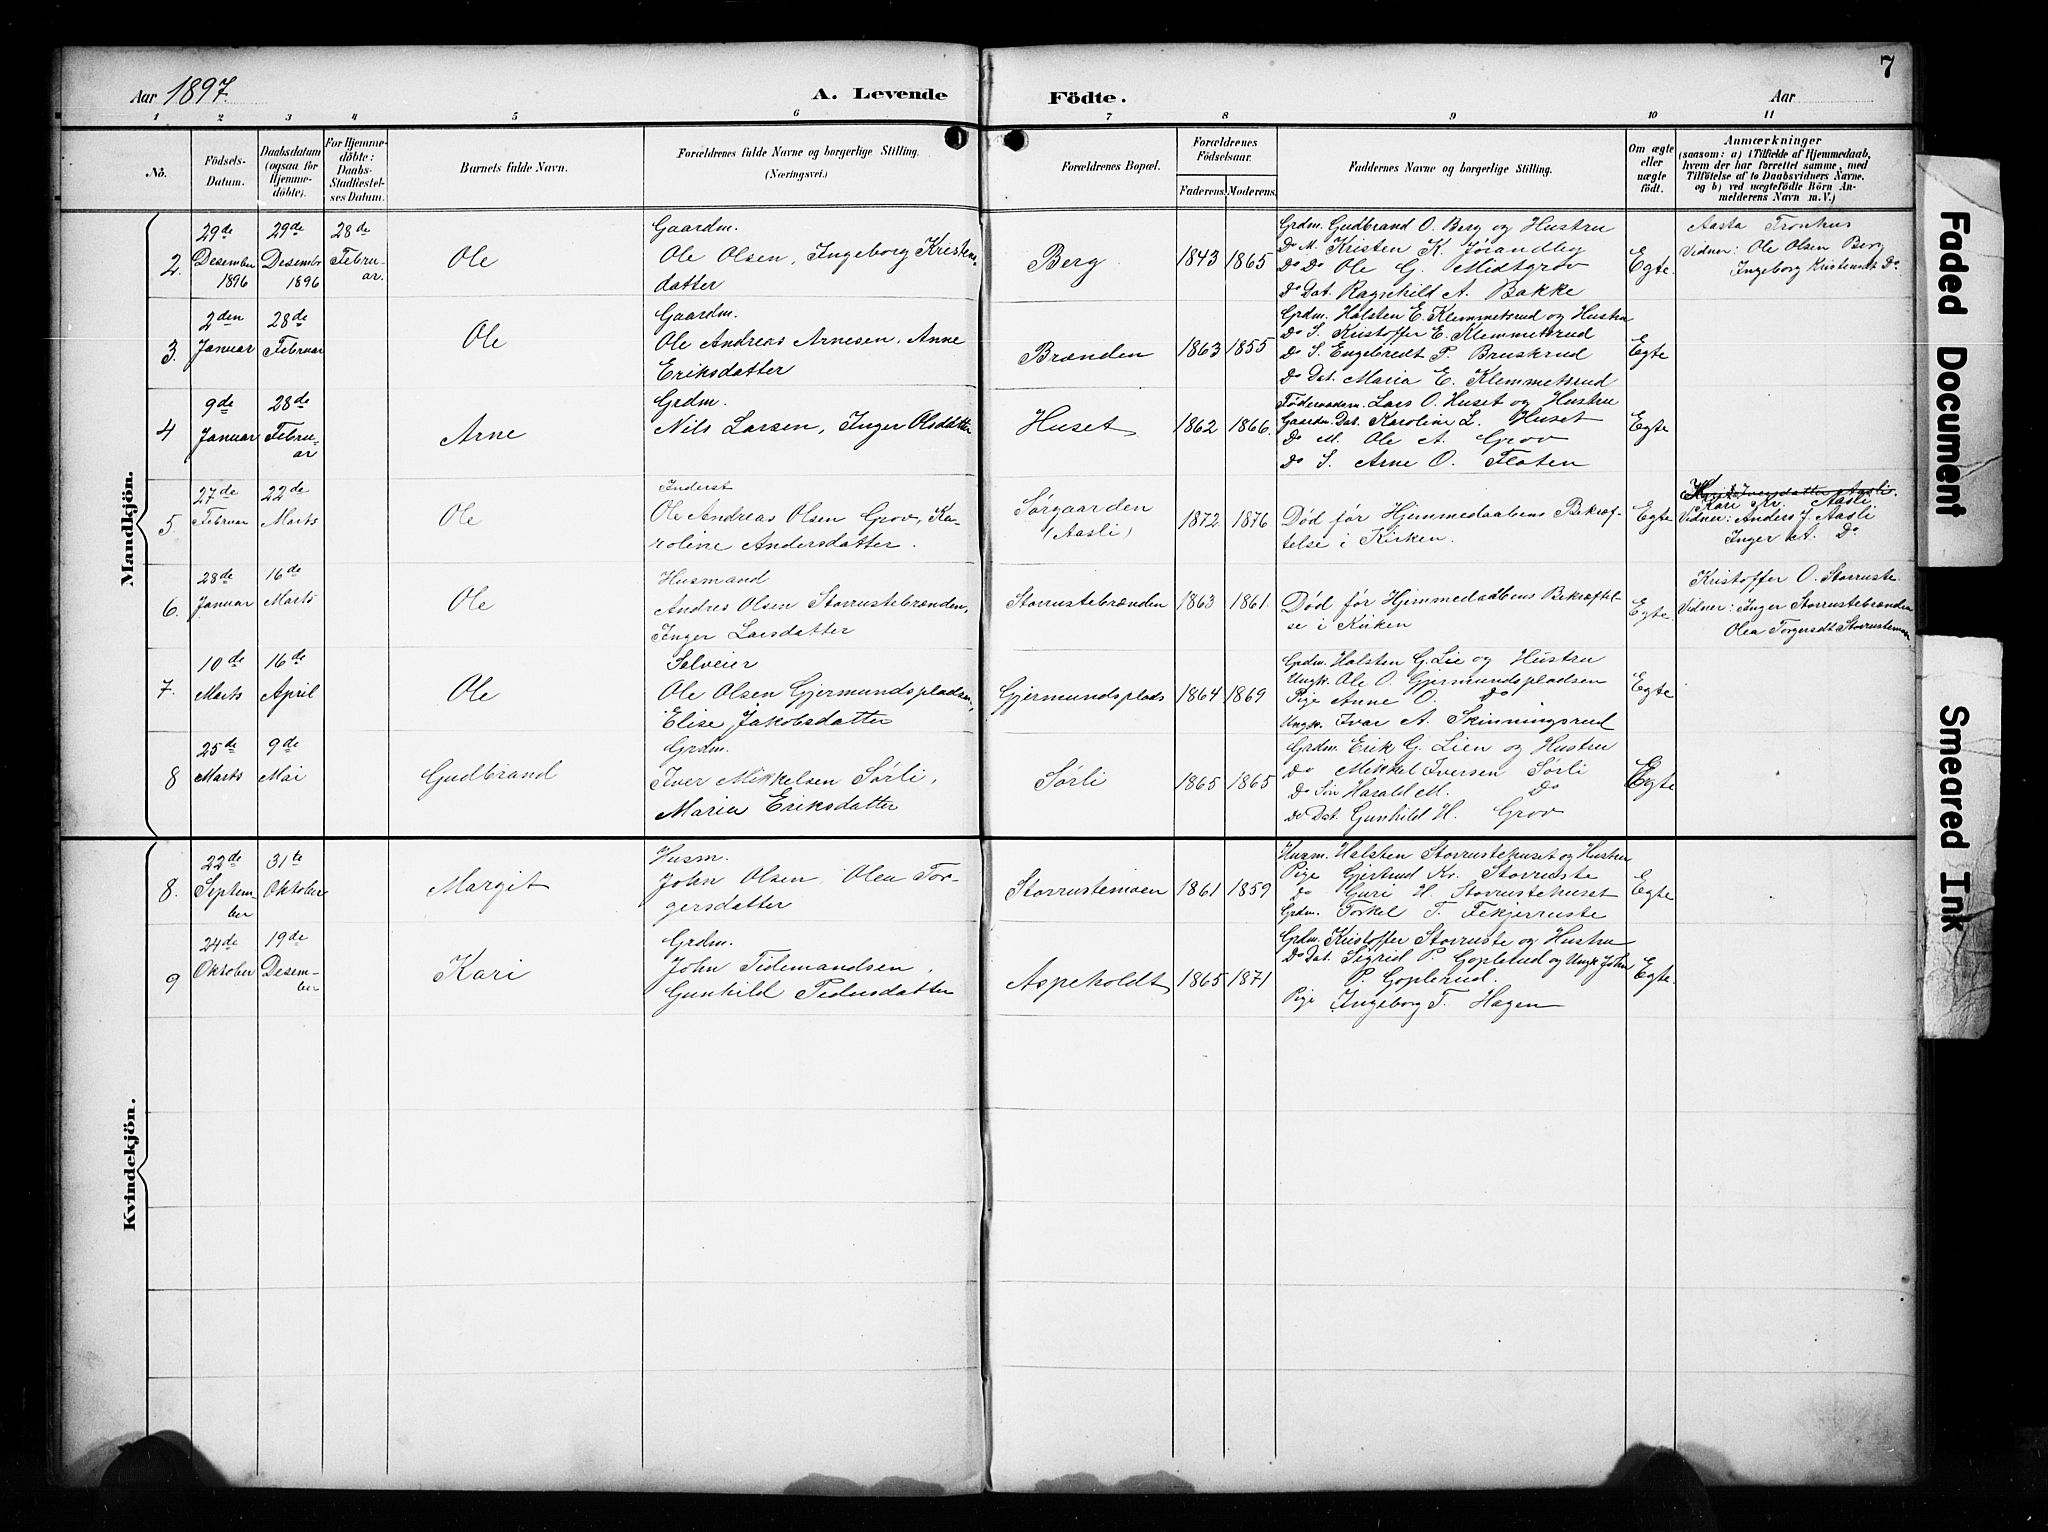 7
Aar 1897.
A. Levende Födte.
Aar
1 2 3 4 5 6 7 8 9 10 11
No.
Födsels-Datum.
Daabsdatum (ogsaa for Hjemme-döbte).
For Hjemme-döbte: Daabs-Stadfæstel-ses Datum.
Barnets fulde Navn.
Forældrenes fulde Navne og borgerlige Stilling. (Næringsvei.)
Forældrenes Bopæl.
Forældrenes Födselsaar.
Faderens. Moderens.
Faddernes Navne og borgerlige Stilling.
Om ægte eller uægte födt.
Anmærkninger
(saasom: a) i Tilfælde af Hjemmedaab,
hvem der har forrettet samme, med
Tilföielse af to Daabsvidners Navne.
og b) ved uægtefödte Börn An-
melderens Navn m.V.)
Mandkjön.
2.
29de Desember 1896
29de Desember 1896
28de Februar.
Ole
Gaardm.
Ole Olsen, Ingeborg Kristens-
datter
Berg
1843 1865
Grdm. Gudbrand O. Berg og Hustru
Do M. Kristen K. Jorandby
Do Do Ole G. Midtgrov
Do Dat. Ragnhild A. Bakke
Egte.
Aasta Tronhus
Vidner: Ole Olsen Berg
Ingeborg Kristensdt Do
3.
2den Januar
28de Februar
Ole
Gaardm.
Ole Andreas Arnesen, Anne
Eriksdatter
Brænden
1863 1855
Grdm. Halsten E. Klemmetsrud og Hustru
Do S. Kristoffer E. Klemmetsrud
Do S. Engebredt P. Bruskrud
Do Dat. Maria E. Klemmetsrud
Egte
4
9de Januar
28de Februar
Arne
Grdm.
Nils Larsen, Inger Olsdatter
Huset
1862 1866.
Föderaadsm. Lars O. Huset og Hustru
Gaardm. Dat. Karoline L. Huset
Do M. Ole A. Grov
Do S. Arne O. Floten
Egte
5
27de Februar
22de Marts
Ole
Inderst
Ole Andreas Olsen Grov, Ka-
roline Andersdatter.
Sørgaarden
(Aasli)
1872 1876
Død før Hjemmedaabens Bekræf-
telse i Kirken.
Egte
Kari Aasli
Vidner: Anders J. Aasli
Inger A. Do
6.
28de Januar
16de Marts
Ole
Husmand
Andres Olsen Storrustebrænden,
Inger Larsdatter
Storrustebrænden
1863 1861.
Død før Hjemmedaabens Bekræftel-
se i Kirken
Egte.
Kristoffer O. Storruste.
Vidner: Inger Storrustebrænden
Olea Torgersdt Storrustemoen
7.
10de Marts
16de April
Ole
Selveier
Ole Olsen Gjermundspladsen,
Elise Jakobsdatter
Gjermundsplads
1864 1869
Grdm. Halsten G. Lie og Hustru
Ungk. Ole O. Gjermundspladsen
Pige Anne O. Do
Ungk. Ivar A. Skinningsrud
Egte
8
25de Marts
9de Mai
Gudbrand
Grdm.
Iver Mikkelsen Sørli,
Maria Eriksdatter
Sørli
1865 1865
Grdm. Erik G. Lien og Hustru
Do Mikkel Iversen Sørli
Do Søn Harald M. Do
Do Dat. Gunhild H. Grov
Egte
Kvindekjön.
8.
22de September
31te Oktober
Margit
Husm.
John Olsen, Olea Tor-
gersdatter
Storrustemoen
1861 1859
Husm. Halsten Storrustehuset og Hustru
Pige Gjertrud Kr. Storruste
Do Guri H. Storrustehuset
Grdm. Torkel T. Fekjerruste
Egte
9
24de Oktober
19de Desember
Kari
Grdm.
John Tidemandsen,
Gunhild Pedersdatter
Aspeholdt
1865 1871
Grdm. Kristoffer Storruste og Hustru
Do Dat. Sigrid P. Goplerud og Ungk John
P. Goplerud.
Pige Ingeborg T. Hagen
Egte.
Faded Document
Smeared Ink